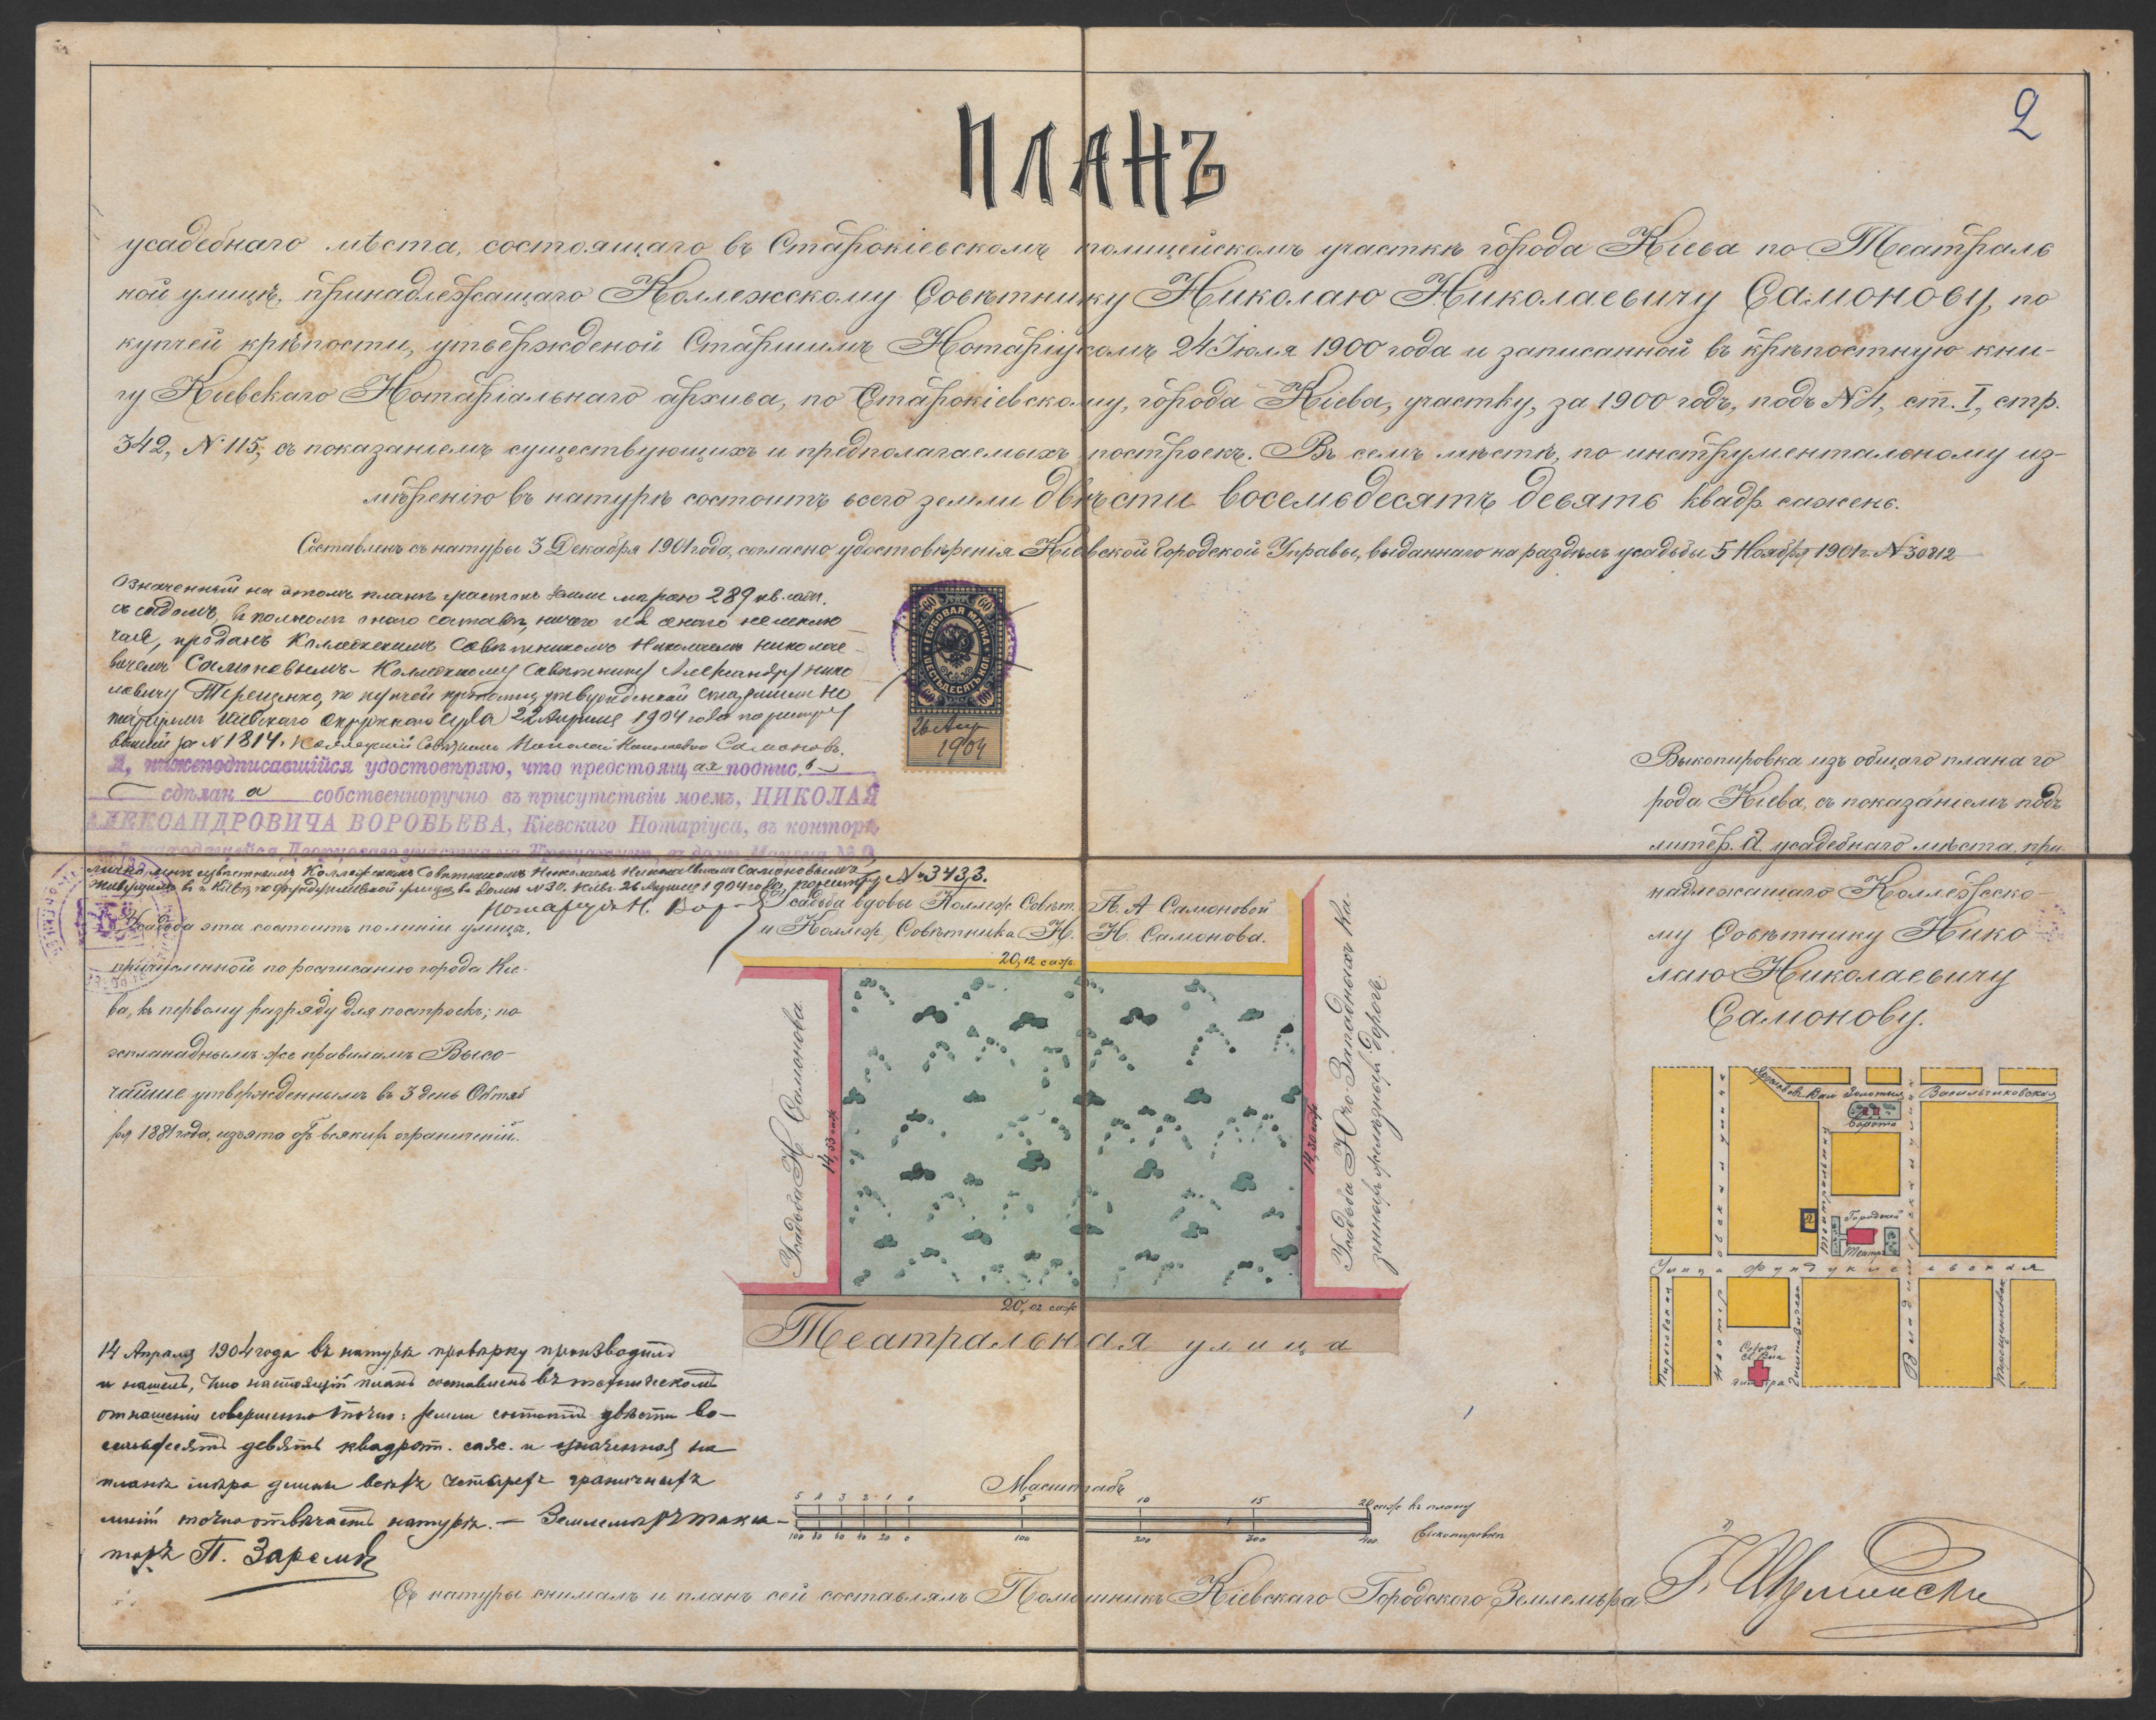 2
ПЛАНЪ
усадебнаго мѣста, состоящаго въ Старокіевскомъ полицейскомъ участкѣ города Кіева по Театраль
ной улицѣ, принадлежащаго Коллежскому Совѣтнику Николаю Николаевичу Самонову, по
купчей крѣпости, утвержденой Старшимъ Нотаріусомъ 24 Іюля 1900 года и записанной въ крѣпостную кни-
гу Кіевскаго Нотаріальнаго архива, по Старокіевскому, города Кіева, участку, за 1900 годъ, подъ № 4, ст. I, стр.
342, № 115, съ показаніемъ существующихъ и предполагаемыхъ построекъ. Въ семъ мѣстѣ, по инструментальному из-
мѣренію въ натурѣ состоитъ всего земли двѣсти восемьдесятъ девять квадр. сажень.
Составленъ съ натуры 3 Декабря 1901 года, согласно удостовѣренія Кіевской Городской Управы, выданнаго на раздѣлъ усадьбы 5 Ноября 1901 г. № 30212
Означенный на этомъ планѣ участокъ земли мѣрою 289 кв. саж.
съ садомъ, въ полномъ его составѣ, ничего изъ онаго не исклю
чая, проданъ Коллежскимъ Совѣтникомъ Николаемъ Николае-
вичемъ Самоновымъ Коллежскому Совѣтнику Александру Нико
лаевичу Терещенко, по купчей крѣпости, утвержденной старшимъ но
таріусомъ Кіевскаго Окружнаго Суда 22 Апрѣля 1904 года по реестру
за № 1814. Коллежскій Совѣтникъ Николай Николаевич Самоновъ.
Я, нижеподписавшійся удостовѣряю, что предстоящ ая подпис. ь
сдѣлан а собственноручно въ присутствіи моемъ, НИКОЛАЯ
АЛЕКСАНДРОВИЧА ВОРОБЬЕВА, Кіевскаго Нотаріуса, въ конторѣ
лично мнѣ извѣстнымъ Коллежскимъ Совѣтникомъ Николаемъ Николаевичемъ Самоновымъ,
живущимъ въ г. Кіевѣ, по Фундуклеевской улицѣ, въ домѣ № 30. Кіевъ 26 Апрѣля 1904 года, по реестру № 3433.
Нотаріусъ Н.
ГЕРБОВАЯ МАРКА
ШЕСТЬДЕСЯТЪ КОП.
60 60
60 60
26 Апр
1904
Усадьба эта состоитъ по линіи улицъ,
причисленной по росписанію города Кіе-
ва, къ первому разряду для построекъ; по
эспланаднымъ же правиламъ Высо-
чайше утвержденнымъ въ 3 день Октяб
ря 1881 года, изъята отъ всякихъ ограниченій.
Усадьба вдовы Коллеж. Совѣт. П. А. Самоновой
и Коллеж. Совѣтника Н. Н. Самонова.
20,12 саж.
Усадьба Н. Самонова
14,53 саж
14,30 саж
Усадьба Юго-Западныхъ Ка-
зенныхъ желѣзныхъ дорогъ.
20,02 саж
Театральная улица
Выкопировка изъ общаго плана го
рода Кіева, съ показаніемъ подъ
литер. А усадебнаго мѣста, при
надлежащаго Коллежско-
му Совѣтнику Нико
лаю Николаевичу
Самонову.
Ярославов. Валъ
Золотыя
Ворота
Васильчиковская
Театральная
Городской
Театръ
Улица Фундуклеевская
Пироговская
Нестеровская улица
Владимірская улица
Соборъ
св. Вла
диміра
Терещенковская
14 Апрѣля 1904 года въ натурѣ провѣрку производилъ
и нашелъ, что настоящій планъ составленъ въ техническомъ
отношеніи совершенно точно: земли состоитъ двѣсти во-
семьдесятъ девять квадрат. саж. и означенная на
планѣ мѣра длины всѣхъ четырехъ граничныхъ
линій точно отвѣчаетъ натурѣ. — Землемѣръ-такса-
торъ П. Заремба
Масштабъ
5 4 3 2 1 0 5 10 15 20 саж къ плану
100 80 60 40 20 0 100 200 300 400 Выкопировки
Съ натуры снималъ и планъ сей составлялъ Помошникъ Кіевскаго Городского Землемѣра